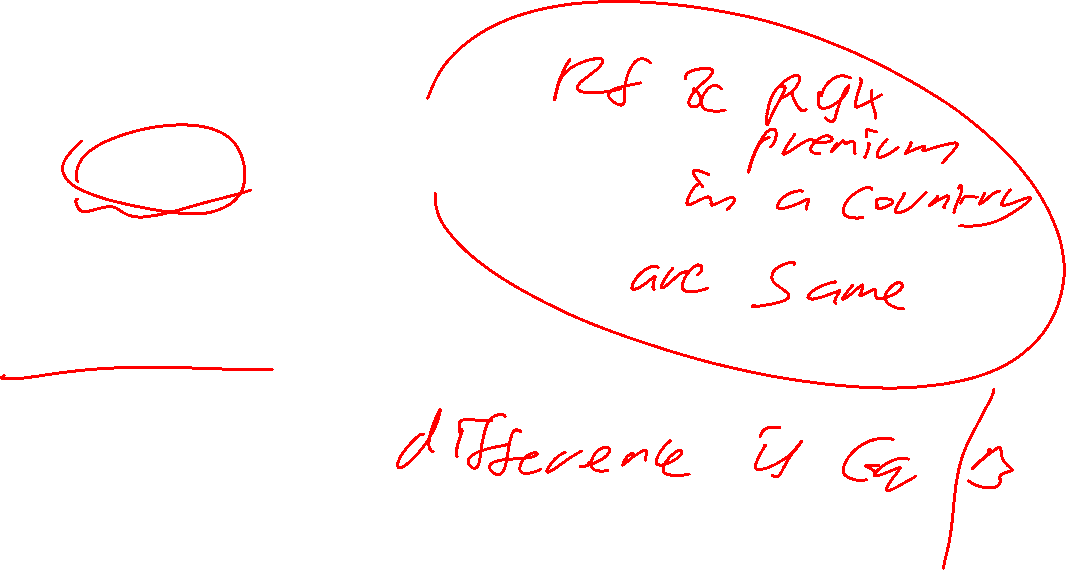 Rf & Risk
premium
in a country
are same
difference is Eq / B